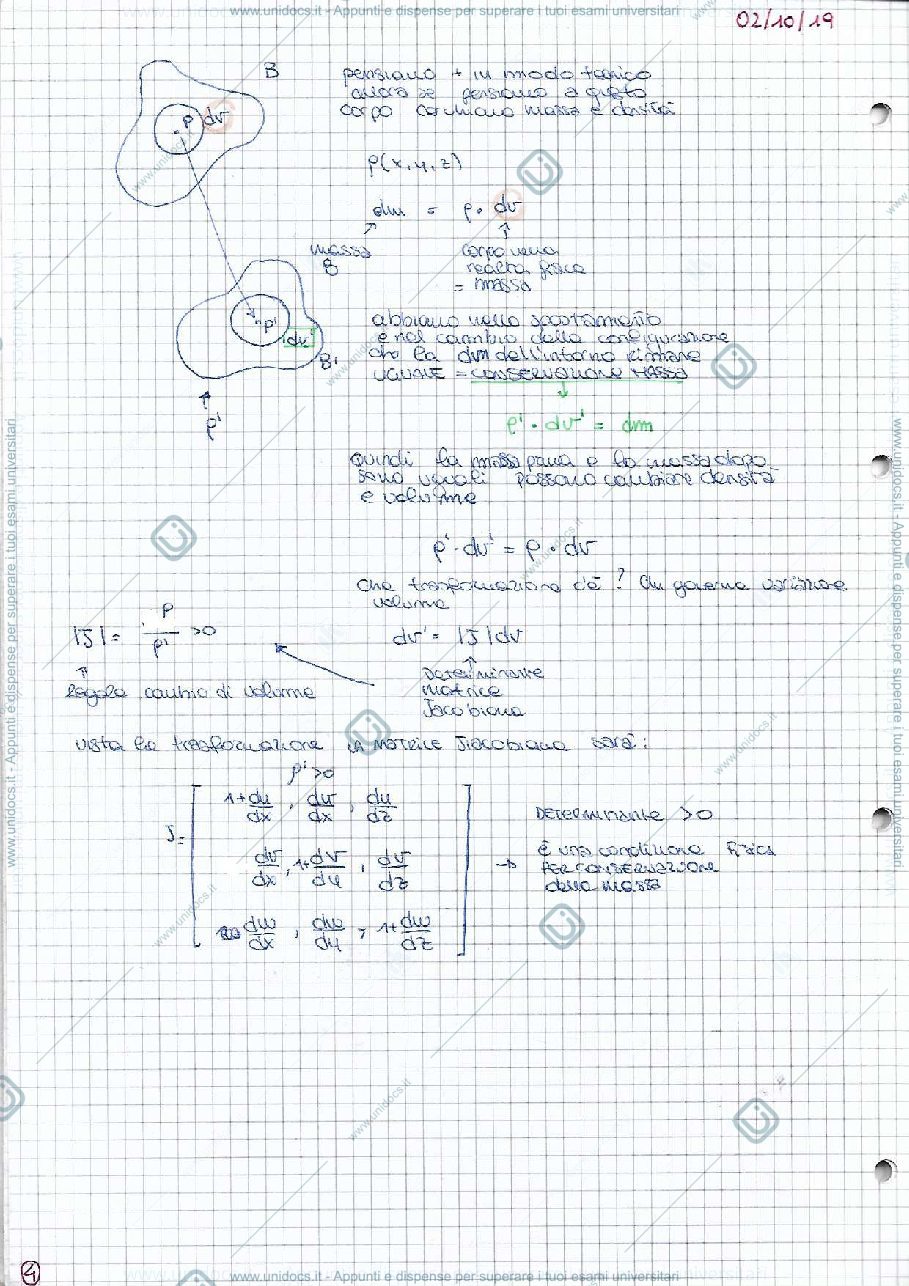 www.unidocs.it - Appunti e dispense per superare i tuoi esami universitari
02/10/19
B
P dv
pensiamo + in modo tecnico
allora se pensiamo a questo
corpo cominciamo massa e densità
ρ(x, y, z)
dm = ρ · dv
massa
B
corpo nella
realtà fisica
= massa
P'
dv'
B'
ρ'
abbiamo nello spostamento
e nel cambio della configurazione
che la dm dell'intorno rimane
UGUALE = CONSERVAZIONE MASSA
ρ' · dv' = dm
quindi la massa prima e la massa dopo
sono uguali possono cambiare densità
e volume
ρ' · dv' = ρ · dv
che trasformazione c'è? Chi governa variazione
volume
|J| = ρ/ρ' >0
dv' = |J|dv
regola cambio di volume
Determinante
matrice
Jacobiana
vista la trasformazione la MATRICE Jacobiana sarà:
ρ' >0
J =
1+du/dx , du/dx , du/dz
dv/dx , 1+dv/dy , dv/dz
dw/dx , dw/dy , 1+dw/dz
DETERMINANTE >0
→ È una condizione fisica
PER CONSERVAZIONE
della massa
4
www.unidocs.it - Appunti e dispense per superare i tuoi esami universitari